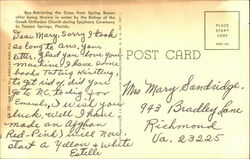 Boy Retrieving the Cross from Spring Bayou
after being thrown in water by the Bishop of the
Greek Orthodox Church during Epiphany Ceremony
in Tarpon Springs, Florida.
Dear Mary, Sorry I took
so long to ans. your
letter. Glad you love your
machine. I have some
back taking Knitting,
& get
to NC. today for
I wish you
luck. Well I have
made an Afghan
Red-Pink & will now
start a Yellow & White
Estelle
PLACE
STAMP
HERE
POST CARD
Mrs Mary Sandridge.
943 Bradley Lane
Richmond
Va, 23225